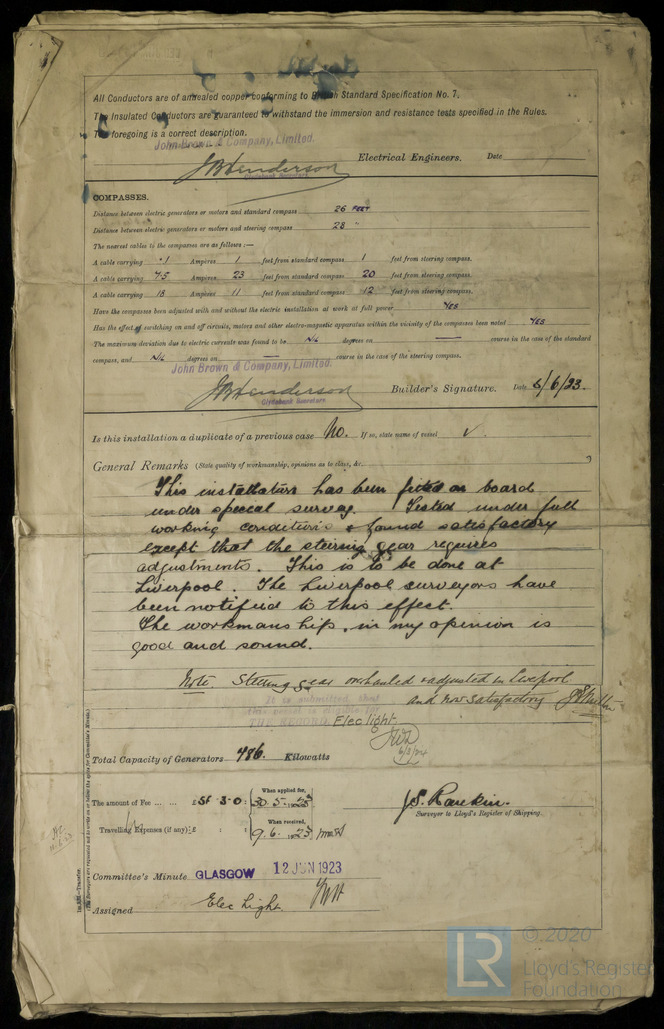 All Conductors are of annealed copper conforming to British Standard Specification No. 7.
The Insulated Conductors are guaranteed to withstand the immersion and resistance tests specified in the Rules.
The foregoing is a correct description.
John Brown & Company, Limited.
JBHenderson Electrical Engineers. Date
Clydebank Secretary
COMPASSES.
Distance between electric generators or motors and standard compass 26 FEET
Distance between electric generators or motors and steering compass 28 "
The nearest cables to the compasses are as follows:—
A cable carrying ·1 Amperes 1 feet from standard compass 1 feet from steering compass.
A cable carrying 75 Amperes 23 feet from standard compass 20 feet from steering compass.
A cable carrying 18 Amperes 11 feet from standard compass 12 feet from steering compass.
Have the compasses been adjusted with and without the electric installation at work at full power YES
Has the effect of switching on and off circuits, motors and other electro-magnetic apparatus within the vicinity of the compasses been noted YES
The maximum deviation due to electric currents was found to be NIL degrees on — course in the case of the standard
compass, and NIL degrees on — course in the case of the steering compass.
John Brown & Company, Limited.
JBHenderson Builder's Signature. Date 6/6/23.
Clydebank Secretary
Is this installation a duplicate of a previous case No. If so, state name of vessel ✓.
General Remarks (State quality of workmanship, opinions as to class, &c.
This installation has been fitted on board
under special survey. Tested under full
working conditions & found satisfactory
except that the steering gear requires
adjustments. This is to be done at
Liverpool. The Liverpool surveyors have
been notified to this effect.
The workmanship, in my opinion is
good and sound.
Note. Steering gear overhauled & adjusted in Liverpool
and now satisfactory
It is submitted that
this vessel is eligible for
THE RECORD. Elec light.
Total Capacity of Generators 486. Kilowatts
The amount of Fee ... ... £51 : 3 : 0 : When applied for, 30. 5. 1923
J.S. Rankin.
Surveyor to Lloyd's Register of Shipping.
Travelling Expenses (if any) £ : : When received, 9. 6. 1923
Committee's Minute GLASGOW 12 JUN 1923
Assigned Elec Light.
LR © 2020
Lloyd's Register
Foundation